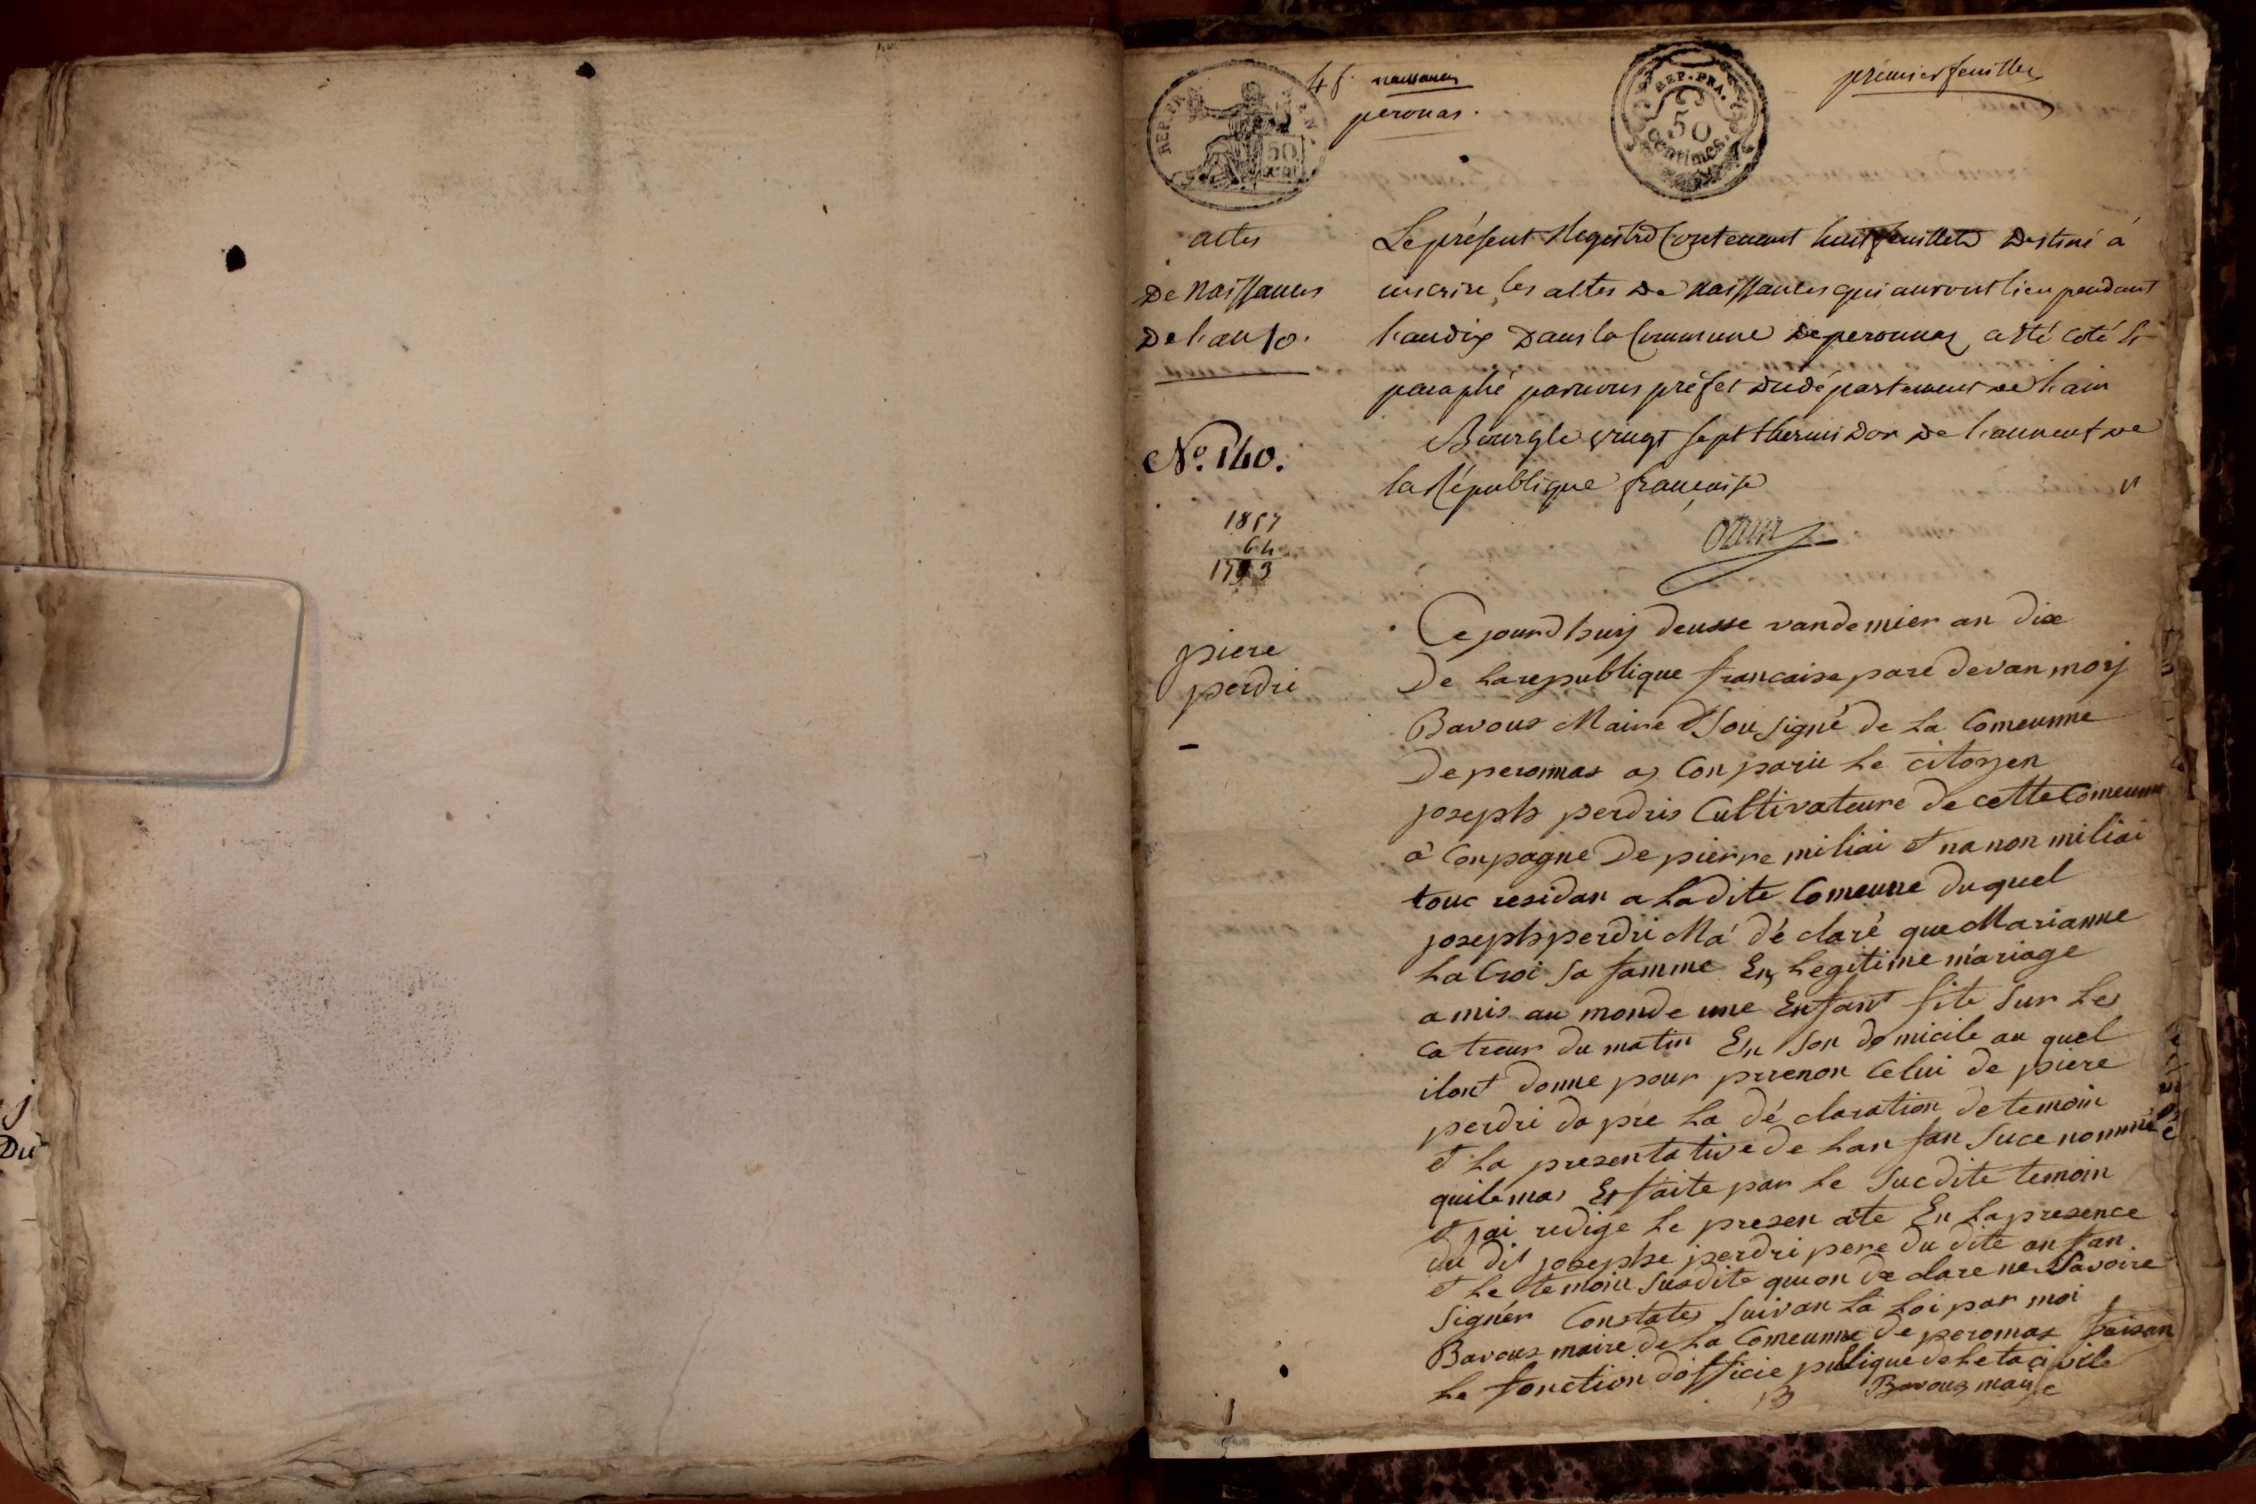 4 f. naissances
peronas.
premier feuillet
REP. FRA.
50
cent
REP. FRA.
50
centimes.
actes
De Naissances
De l'an 10.
Le présent Registre Contenant huit feuillets Destiné à
inscrire les actes De Naissances qui auront lieu pendant
l'an dix Dans la Commune De peronnas a Été Coté Et
paraphé par nous préfet du département de l'ain
Bourg le vingt sept thermidor De l'an neuf de
la République française
ozun
No. 140.
1857
64
1793
piere
perdri
Ce jourdhuij deusse vandemier an dix
De La republique francaise pare devan moij
Bavoux Maire Et Sousigné de La Comeunne
De peronnas as Conparu Le citoyen
joseph perdris Cultivateure de cette Comeunne
a Conpagne De pierre miliai et nanon miliai
touc residan a La dite Comeune du quel
joseph perdri Ma dé claré que Marianne
La Croi Sa famme En Legitime mariage
a mis au monde une Enfant fite Sur Les
catreur du matin En Son domicile au quel
ilont donne pour prrenon Celui de piere
perdri da pre La dé claration de temoin
et La presentative de Lanfan Suce nommé
quile mas Et faite par Le Sucdite temoin
et jai redige Le presen ate En La presence
du dit josephe perdri pere du dite anfan
et Le temoin Susdite quon de clare ne Savoire
Signér Constates Suivan La Loi par moi
Bavoux maire de La Comeunne de peronnas faisan
Le fonction dofficie publique de Leta civile
Bavoux maire
Du